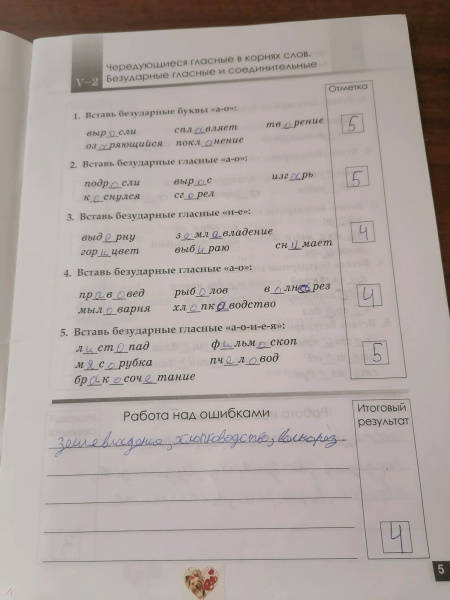 V-2
Чередующиеся гласные в корнях слов.
Безударные гласные и соединительные
Отметка
1. Вставь безударные буквы «а-о»:
выросли сплавляет творение
озаряющийся поклонение
5
2. Вставь безударные гласные «а-о»:
подросли вырос изгарь
коснулся сгорел
5
3. Вставь безударные гласные «и-е»:
выдерну землевладение
горицвет выбираю снимает
4
4. Вставь безударные гласные «а-о»:
правовед рыболов волнорез
мыловарня хлопководство
4
5. Вставь безударные гласные «а-о-и-е-я»:
листопад фильмоскоп
мясорубка пчеловод
бракосочетание
5
Работа над ошибками
Итоговый
результат
землевладение, хлопководство, волнорез
4
5